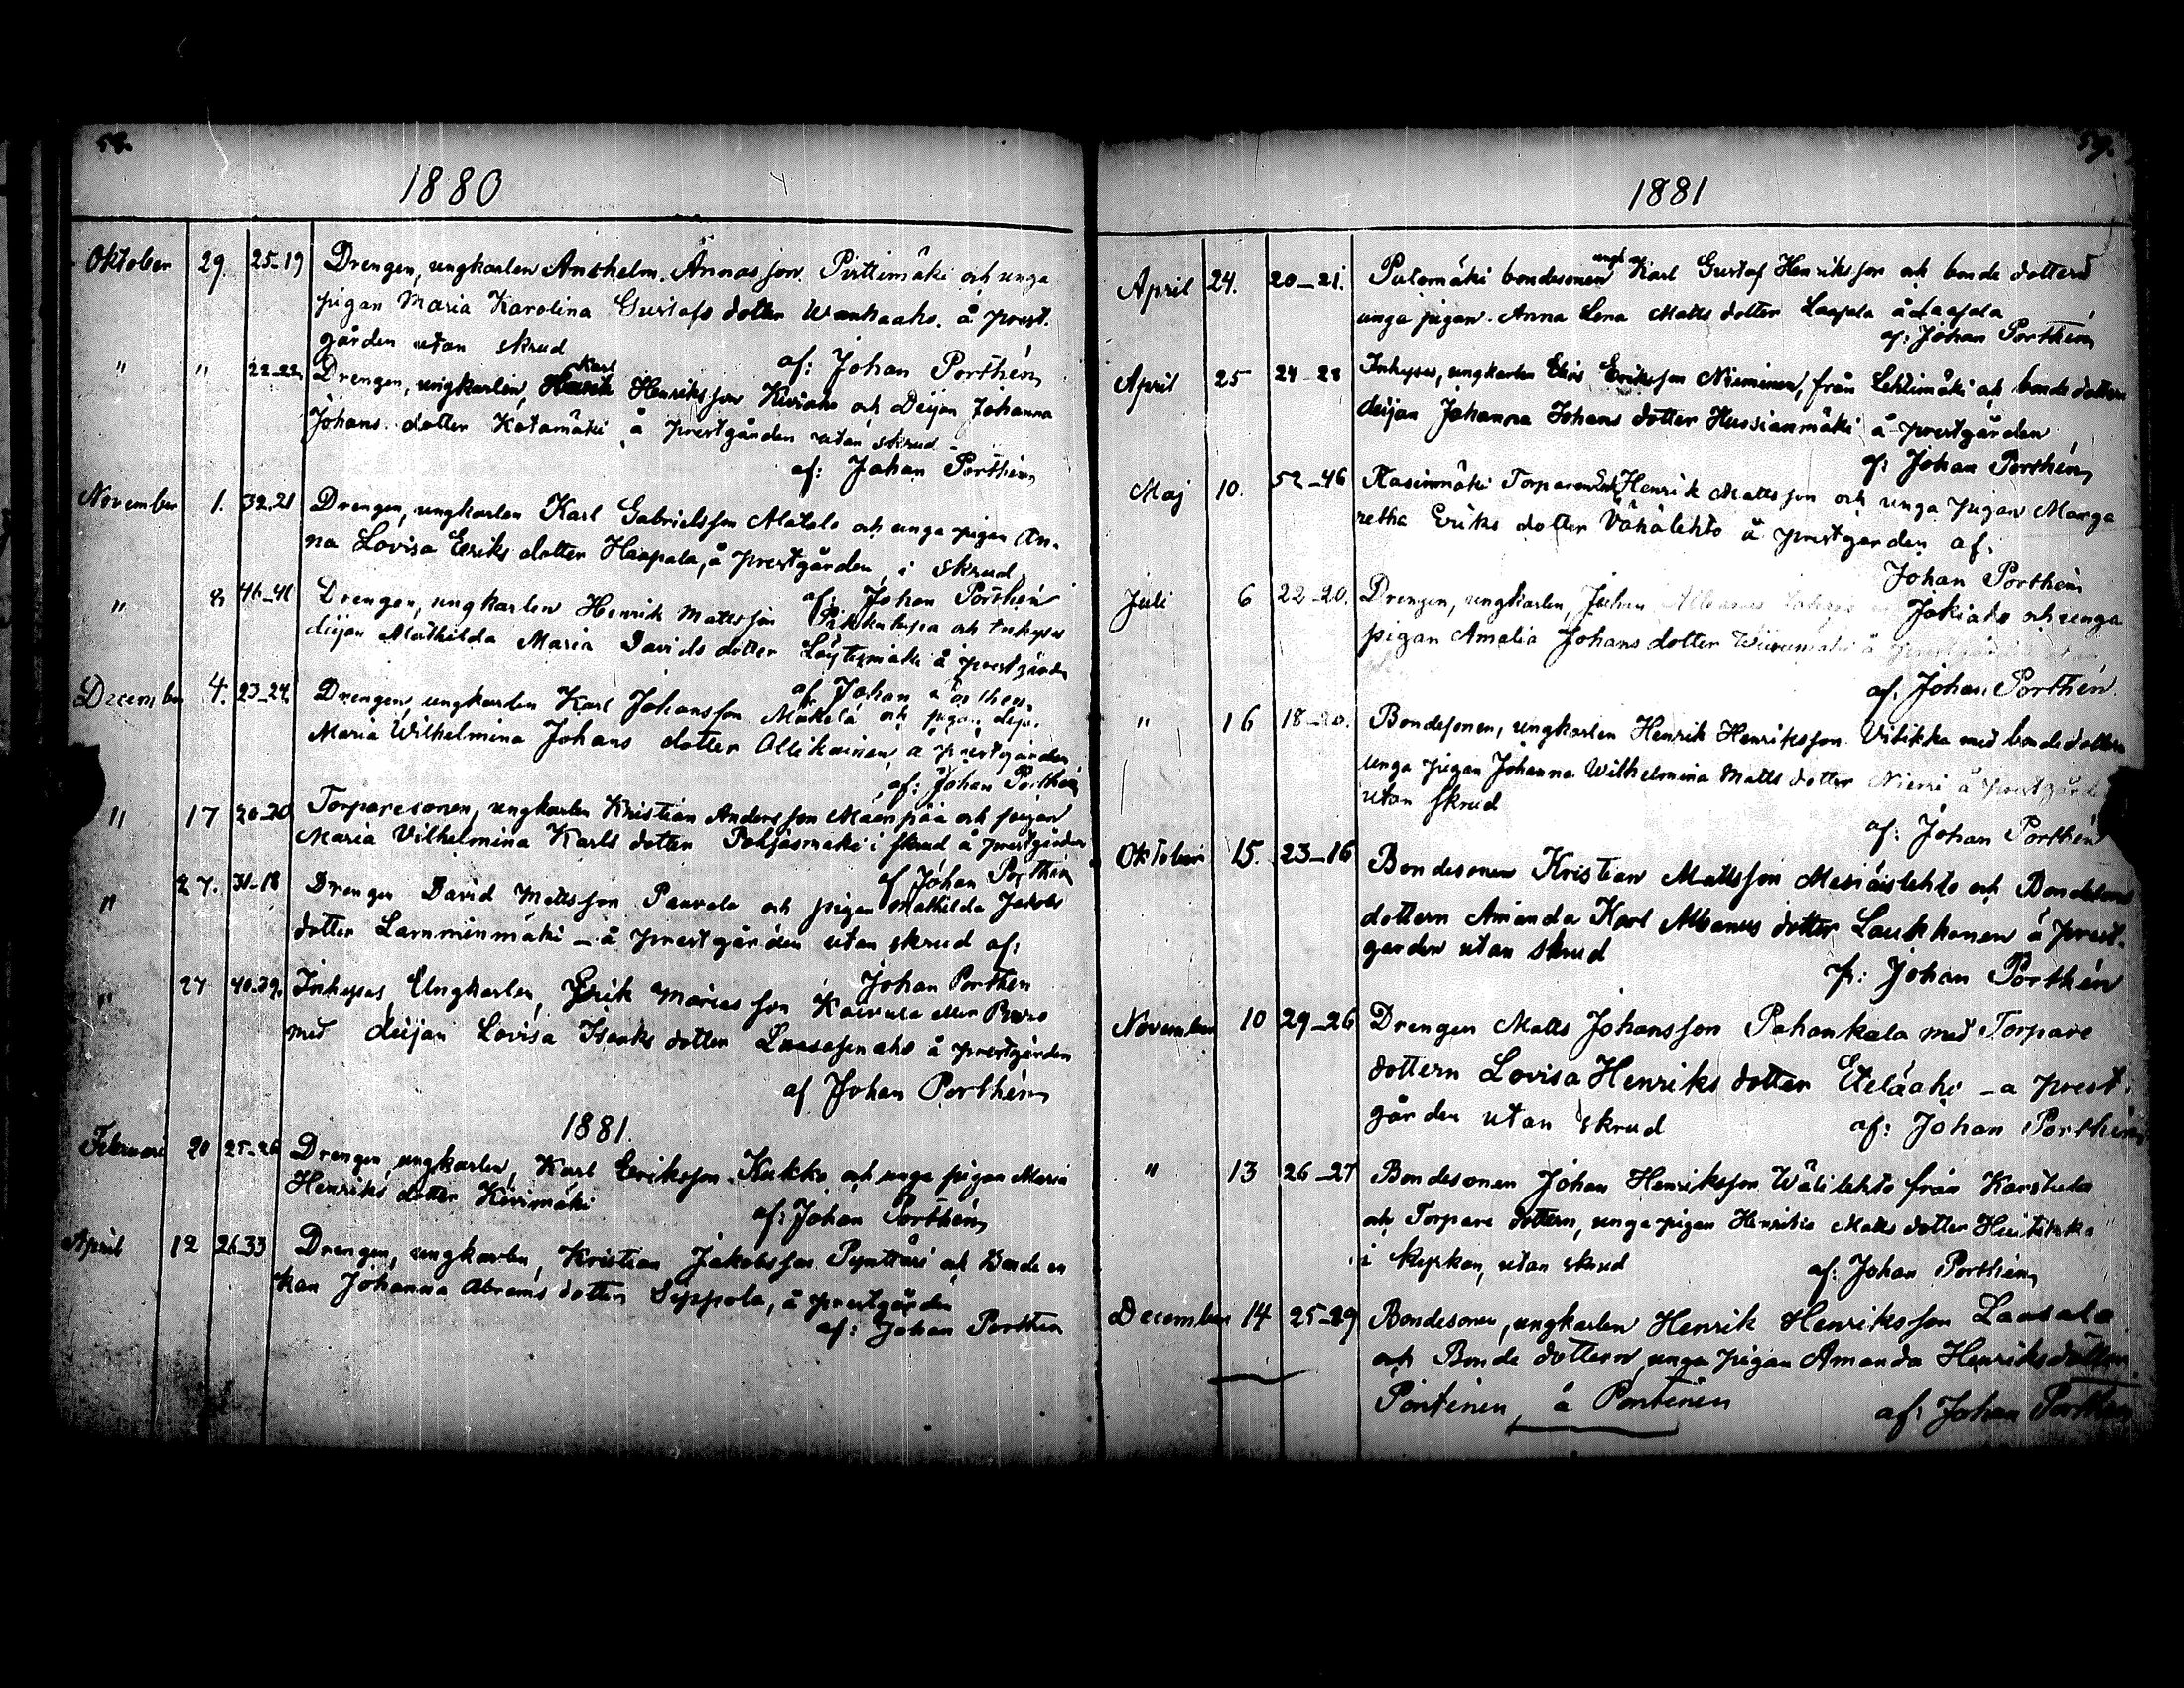 58.
1880
Oktober 29. 25-19 Drengen, ungkarlen Anshelm Annasson Pirttimäki och unga
pigan Maria Karolina Gustafs dotter Wanhaaho. å prest-
gården utan skrud
af: Johan Porthén
" " 22-22 Drengen, ungkarlen, Karl Henriksson Kiviaho och Deijan Johanna
Johans dotter Kotamäki å prestgården utan skrud
af: Johan Porthén
November 1. 32.21 Drengen, ungkarlen Karl Gabrielsson Alatalo och unga pigan An-
na Lovisa Eriks dotter Haapala, å prestgården i skrud
af: Johan Porthén
" 8 46-41 Drengen, ungkarlen Henrik Mattsson och Inhyses
deijan Mathilda Maria Davids dotter å prestgården
af Johan Porthén
December 4. 23-24. Drengen ungkarlen Karl Johansson Mäkelä och pigan
Maria Wilhelmina Johans dotter Ollikainen, a prestgården
af: Johan Porthén
" 17 20-20 Torparesonen, ungkarlen Kristian Andersson Mäenpää och pigan
Maria Vilhelmina Karls dotter Pohjasmäki i skrud å prestgården
af Johan Porthén
" 27. 31-18 Drengen David Mattsson Panvela och pigan Mathilda Jakobs
dotter Lamminmäki - å prestgården utan skrud af:
Johan Porthén
" 27 40.39. Inhyses, Ungkarlen, Erik Mariasson Koivula eller Puro
med deijan Lovisa Isaaks dotter å prestgården
af Johan Porthén
1881.
Februari 20 25-26 Drengen, ungkarlen, Karl Eriksson Kukko och unga pigan Maria
Henriks dotter Kivimäki
af: Johan Porthén
April 12 26.33 Drengen, ungkarlen, Kristian Jakobsson Pynttäri och Bonde en
kan Johanna Abrams dotter Seppola, å prestgården
af: Johan Porthén
59.
1881
April 24. 20-21. Palomäki bondesonen ungk Karl Gustaf Henriksson och bonde dottern
unga pigan Anna Lena Matts dotter Laasala å Laasala
af: Johan Porthén
April 25 24-28 Inhyses, ungkarlen Eriksson Nieminen, från Lehtimäki och bonde dottern
deijan Johanna Johans dotter Hussianmäki å prestgården
af: Johan Porthén
Maj 10. 52-46 Kasinmäki Torparen Henrik Mattsson och unga pigan Marga
retha Eriks dotter Vähälehto å prestgården af:
Johan Porthén
Juli 6 22-20. Drengen, ungkarlen, Johan Jokiaho och unga
pigan Amalia Johans dotter å
af: Johan Porthén.
" 16 18-20. Bondesonen, ungkarlen Henrik Henriksson Vitikka med bondedottern
unga pigan Johanna Wilhelmina Matts dotter Niemi å prestgården
utan skrud
af: Johan Porthén
Oktober 15. 23-16 Bondesonen Kristian Mattsson Mesiäislehto och Bonde
dottern Amanda Karl Albanus dotter Laukkonen å prest-
garden utan skrud
af: Johan Porthén
November 10 29-26 Drengen Matts Johansson Pahankala med Torpare
dottern Lovisa Henriks dotter Eteläaho - a prest-
går den utan skrud
af: Johan Porthén
" 13 26-27 Bondesonen Johan Henriksson Wälilehto från Karstula
och Torpare dottern, unga pigan Henrika Matts dotter
i kyrkan, utan skrud
af: Johan Porthén
December 14 25-29 Bondesonen, ungkarlen Henrik Henriksson Laasala
och Bonde dottern unga pigan Amanda Henriksdotter
Pöntinen, å Pöntinen
af: Johan Porthén